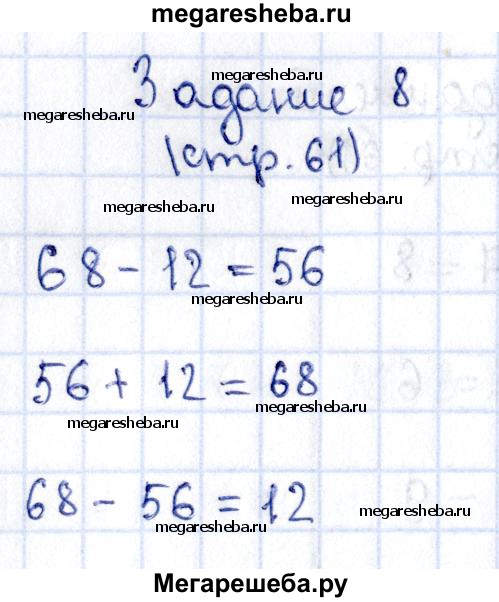 megaresheba.ru
Задание 8
megaresheba.ru
megaresheba.ru
(стр. 61)
megaresheba.ru
megaresheba.ru
68 - 12 = 56
megaresheba.ru
56 + 12 = 68
megaresheba.ru
megaresheba.ru
68 - 56 = 12
megaresheba.ru
megaresheba.ru
Мегарешеба.ру